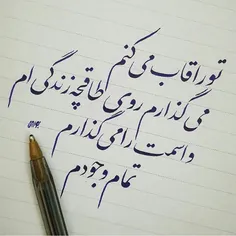 تو را قاب می کنم
می گذارم روی طاقچه زندگی ام
و اسمت را می گذارم
تمام وجودم